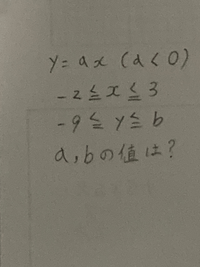 y = ax (a < 0)
-2 ≦ x ≦ 3
-9 ≦ y ≦ b
a, bの値は?